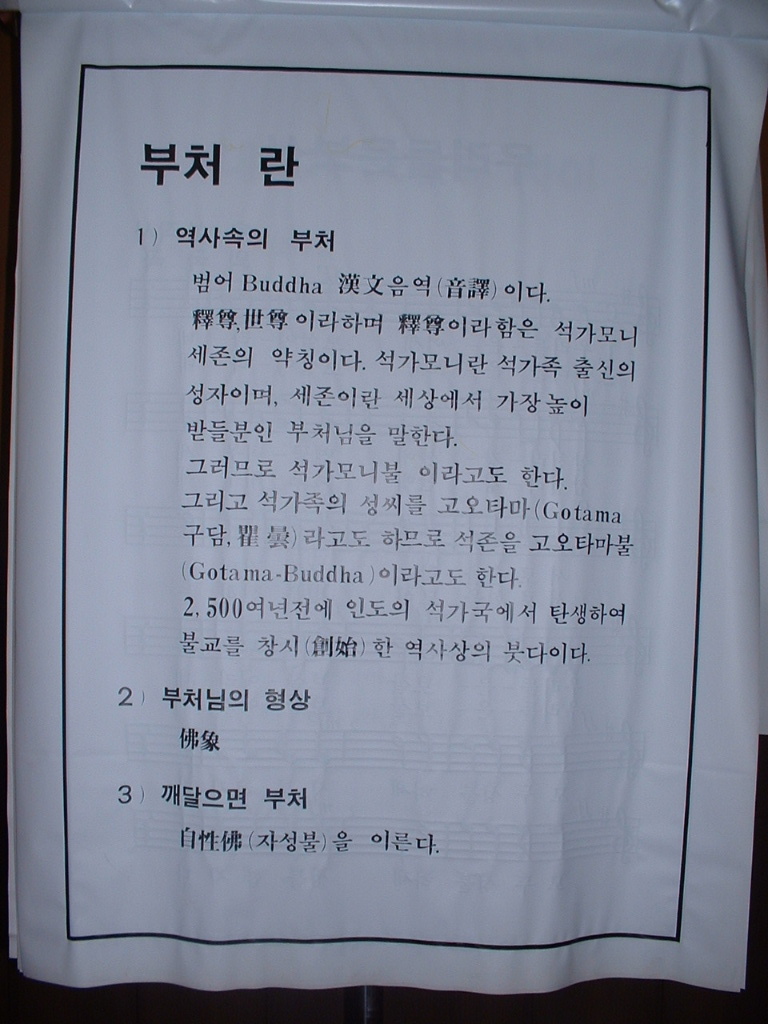 부처 란
1) 역사속의 부처
범어 Buddha 漢文음역(音譯)이다.
釋尊,世尊이라하며 釋尊이라함은 석가모니
세존의 약칭이다. 석가모니란 석가족 출신의
성자이며, 세존이란 세상에서 가장높이
받들분인 부처님을 말한다.
그러므로 석가모니불 이라고도 한다.
그리고 석가족의 성씨를 고오타마(Gotama
구담, 瞿曇)라고도 하므로 석존을 고오타마불
(Gotama-Buddha)이라고도 한다.
2,500여년전에 인도의 석가국에서 탄생하여
불교를 창시(創始)한 역사상의 붓다이다.
2) 부처님의 형상
佛象
3) 깨달으면 부처
自性佛(자성불)을 이른다.